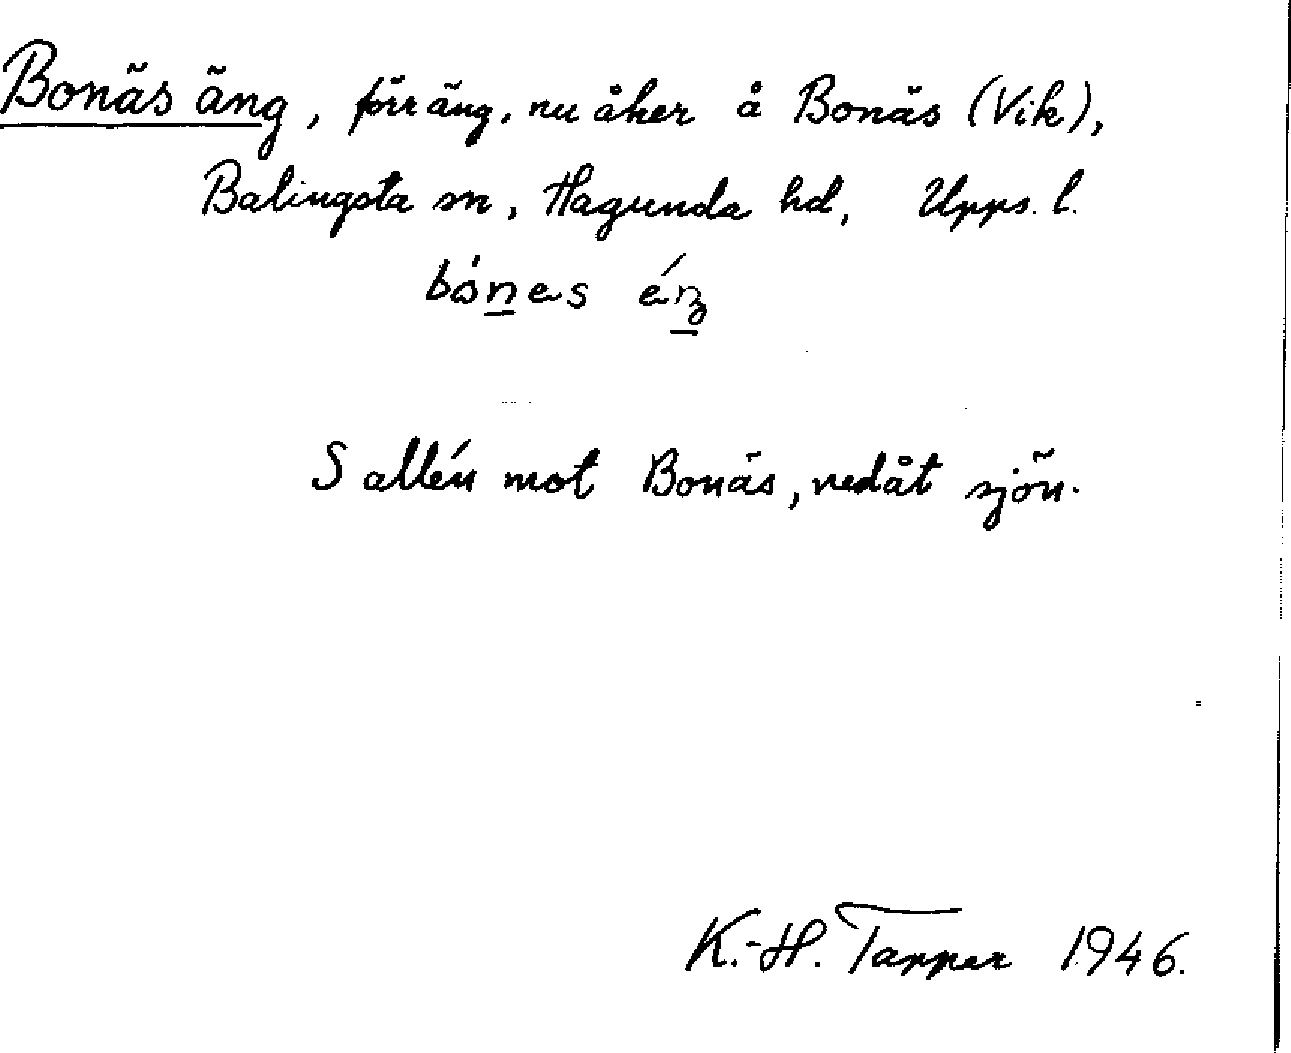 Bonäs äng, förr äng, nu åker å Bonäs (Vik),
Balingsta sn, Hagunda hd, Upps. l.
bónes
S allén mot Bonäs, nedåt sjön.
K.-H. Tapper 1946.